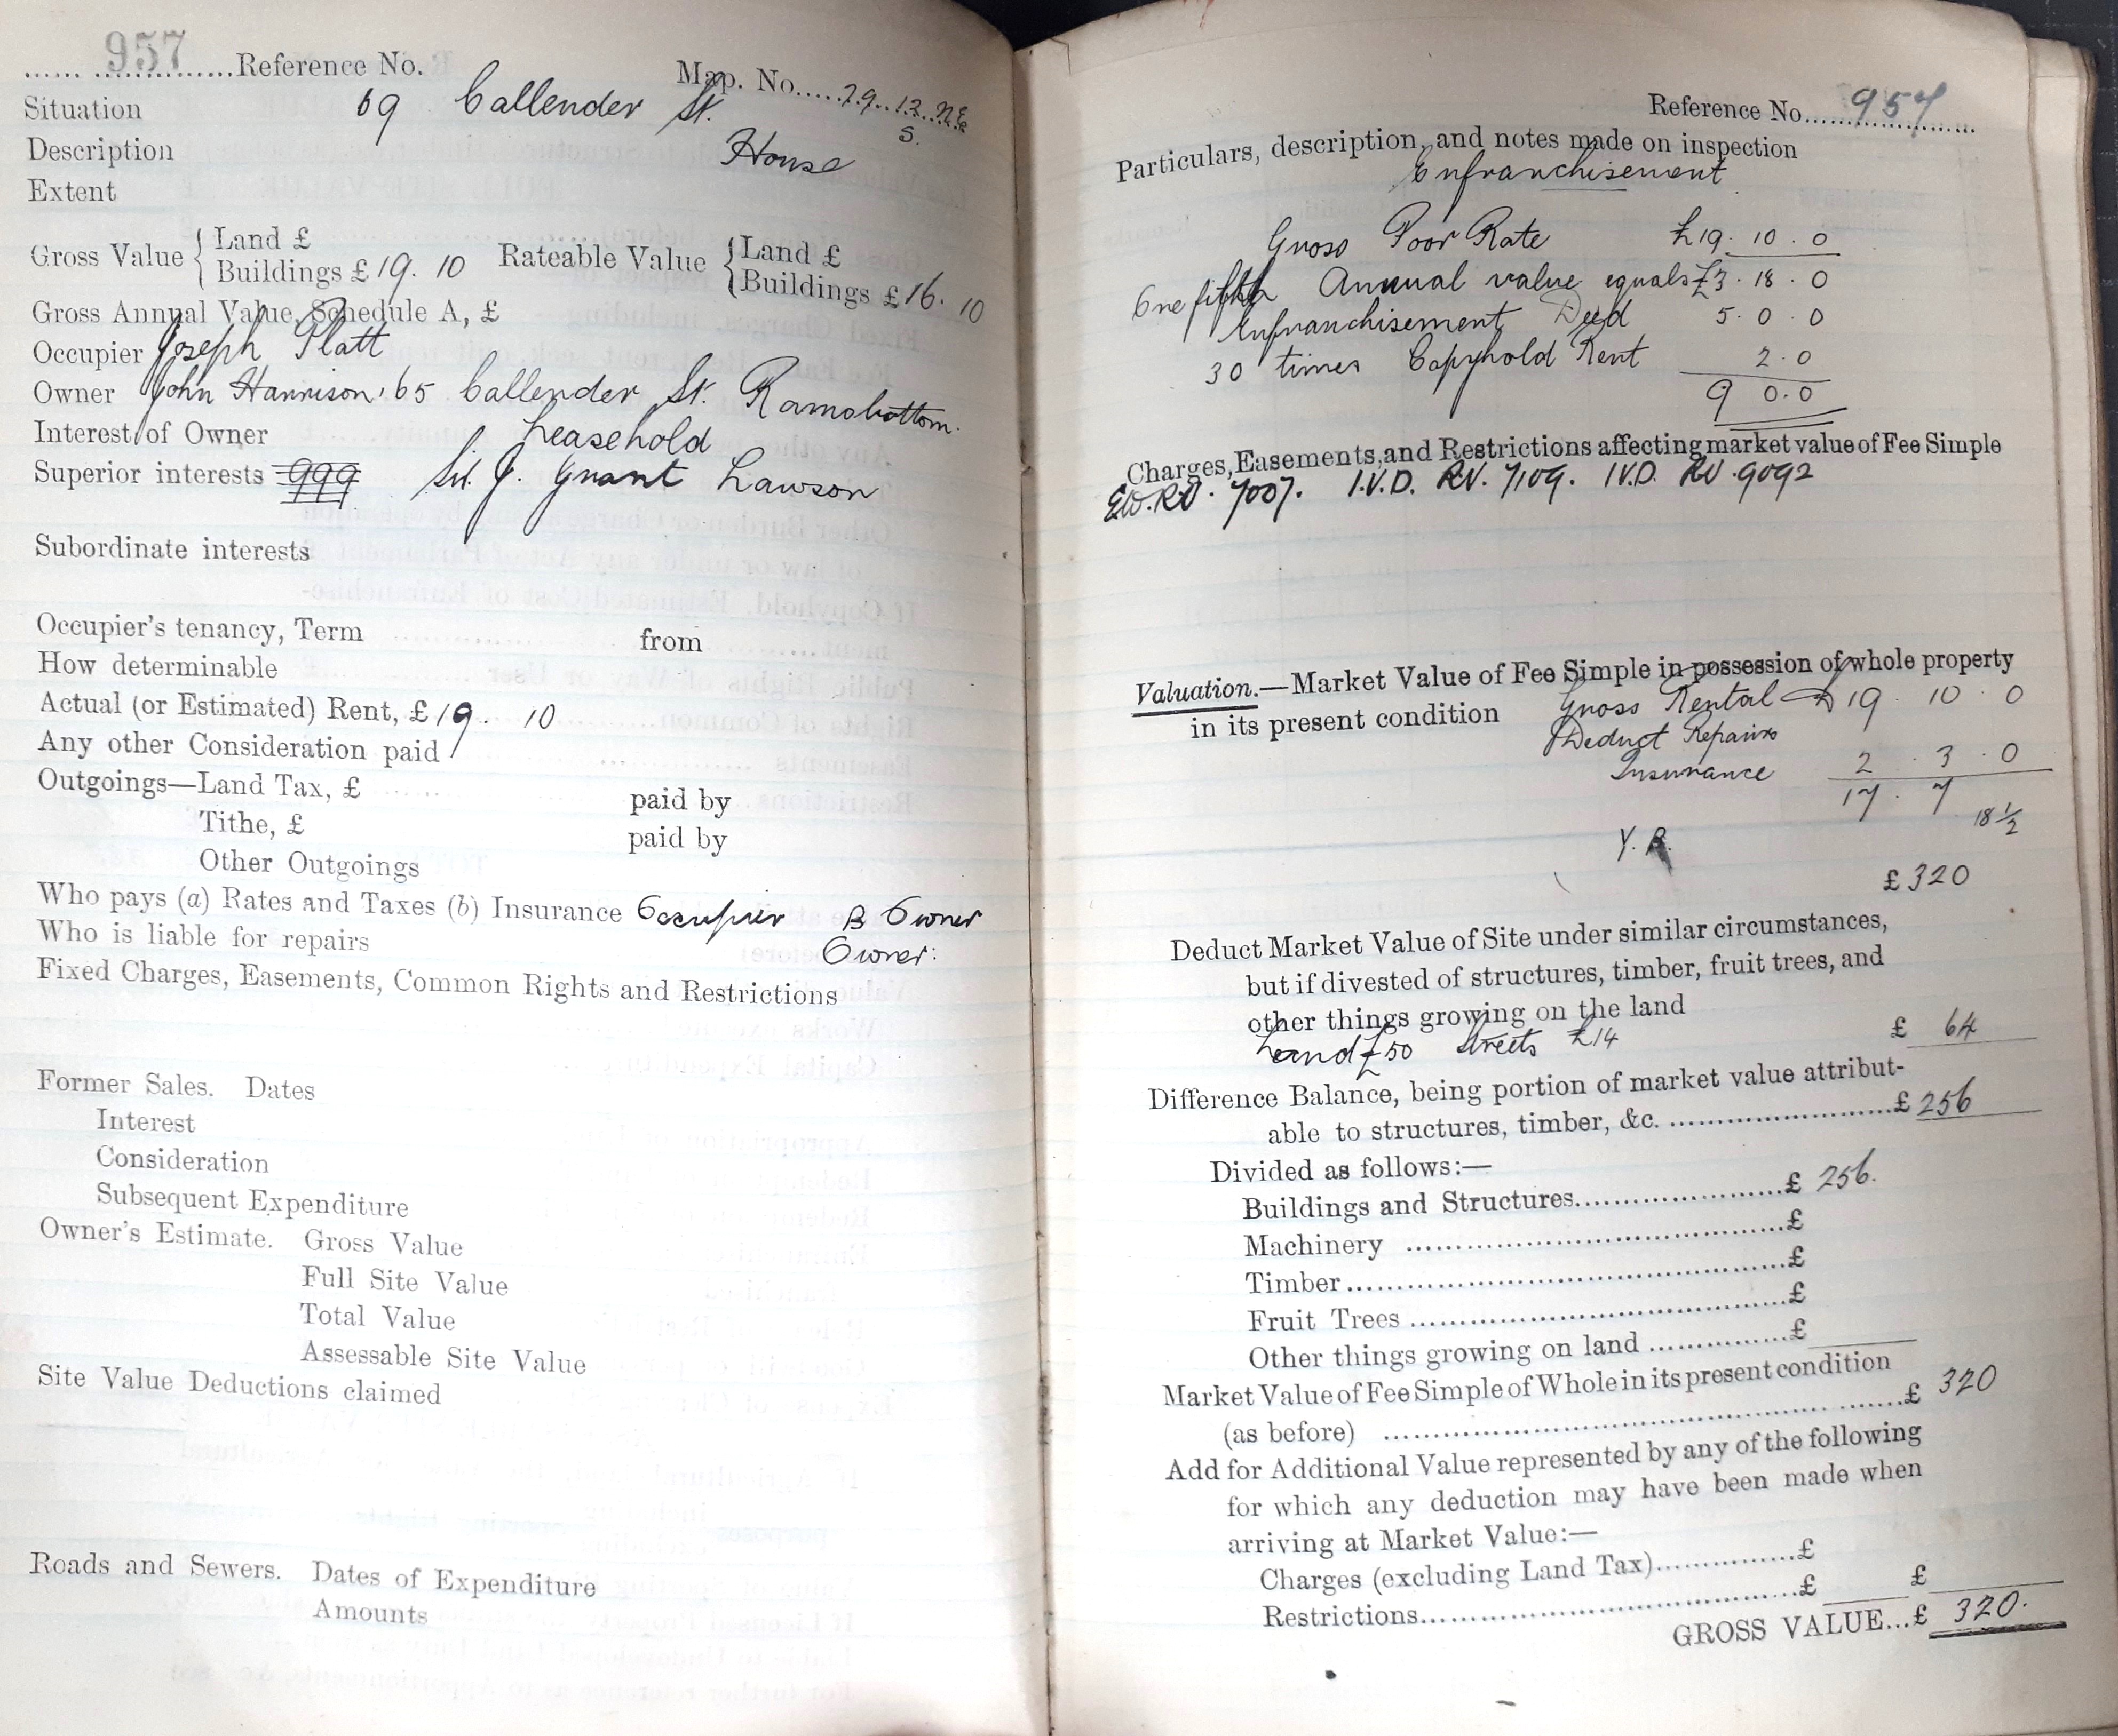 957 Reference No. Map. No. 79. 12. NE
S.
Situation 69 Callender St.
Description House
Extent
Gross Value { Land £ Rateable Value { Land £
Buildings £ 19. 10 Buildings £ 16. 10
Gross Annual Value, Schedule A, £
Occupier Joseph Platt
Owner John Harrison, 65 Callender St. Ramsbottom.
Interest of Owner Leasehold
Superior interests 999 Sir. J. Grant Lawson
Subordinate interests
Occupier's tenancy, Term from
How determinable
Actual (or Estimated) Rent, £ 19. 10
Any other Consideration paid
Outgoings—Land Tax, £ paid by
Tithe, £ paid by
Other Outgoings
Who pays (a) Rates and Taxes (b) Insurance Occupier B Owner
Who is liable for repairs Owner:
Fixed Charges, Easements, Common Rights and Restrictions
Former Sales. Dates
Interest
Consideration
Subsequent Expenditure
Owner's Estimate. Gross Value
Full Site Value
Total Value
Assessable Site Value
Site Value Deductions claimed
Roads and Sewers. Dates of Expenditure
Amounts
Reference No. 957
Particulars, description, and notes made on inspection
Enfranchisement
Gross Poor Rate £19. 10. 0
One fifth Annual value equals £3. 18. 0
Enfranchisement Deed 5. 0. 0
30 times Copyhold Rent 2. 0
9 0. 0
Charges, Easements, and Restrictions affecting market value of Fee Simple
I.V.D. RV. 7109. I.V.D. RV. 9092
Valuation.—Market Value of Fee Simple in possession of whole property
in its present condition Gross Rental £ 19. 10. 0
Deduct Repairs
Insurance 2. 3. 0
17. 7
18½
Y.P.
£ 320
Deduct Market Value of Site under similar circumstances,
but if divested of structures, timber, fruit trees, and
other things growing on the land
Land £50 Streets £14 £ 64
Difference Balance, being portion of market value attribut-
able to structures, timber, &c. £ 256
Divided as follows:—
Buildings and Structures £ 256.
Machinery £
Timber £
Fruit Trees £
Other things growing on land £
Market Value of Fee Simple of Whole in its present condition
(as before) £ 320
Add for Additional Value represented by any of the following
for which any deduction may have been made when
arriving at Market Value:—
Charges (excluding Land Tax) £
Restrictions £ £
GROSS VALUE...£ 320.